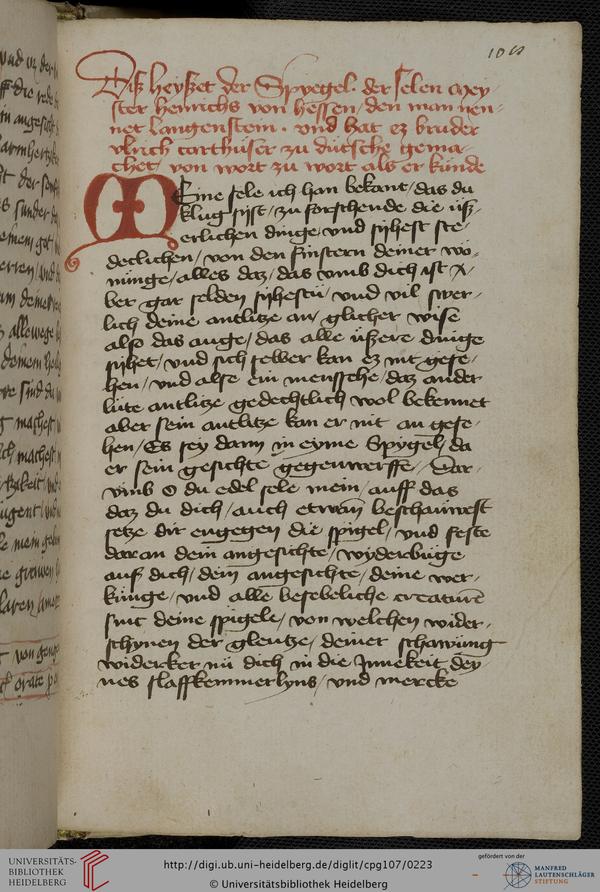 Diß heyßet der Spyegel der selen mey-
ster henrichs von hessen / den man nen-
net langenstein . vnd hat ez bruder
vlrich carthuser zu dutsche gema-
chet / von wort zu wort als er kunde
MEine sele ich han bekant / das du
klug syst / zu forschende die üß-
erlichen dinge vnd syhest ste-
declichen / von den finstern deiner wo-
nunge / alles daz / das vmb dich ist /
ber gar selden syhestu / vnd vil swer-
lich deine antlitze an / glicher wise
also das auge / das alle üßere dinge
syhet / vnd sich selber kan ez nit gese-
hen / vnd alse ein mensche / daz ander
lüte antlitze gedechtlich wol bekennet
aber sein antlitze kan er nit an gese-
hen / Es sey dann in eyme Spygel / da
er sein gesichte gegenwerffe / Dar-
vmb O du edel sele mein / auff das
daz du dich / auch etwan beschauwest
setze dir engegen die spigel / vnd feste
daran dein angesichte / wyderbüge
auf dich / dein angesichte / deine wer-
kunge / vnd alle besebeliche creature
sint deine spigele / von welchen wider-
schynen der glentze / deiner schawung
widerker nu dich in die Innekeit dey
nes slaffkemmerlyns / vnd mercke
UNIVERSITÄTS-
BIBLIOTHEK
HEIDELBERG
http://digi.ub.uni-heidelberg.de/diglit/cpg107/0223
© Universitätsbibliothek Heidelberg
gefördert von der
MANFRED
LAUTENSCHLÄGER
STIFTUNG